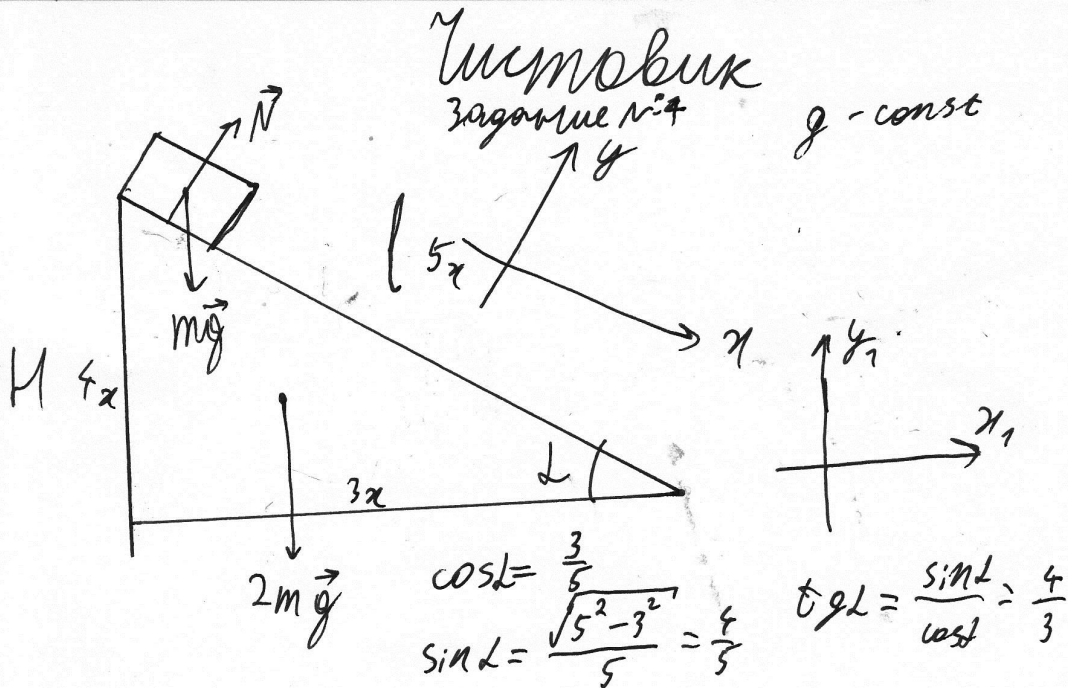 Чистовик
Задание №4
g - const
N
y
l 5x
mg
x
y₁
H 4x
x₁
α
3x
2mg
cosα = 3/5
sinα = √(5² - 3²)/5 = 4/5
tgα = sinα/cosα = 4/3